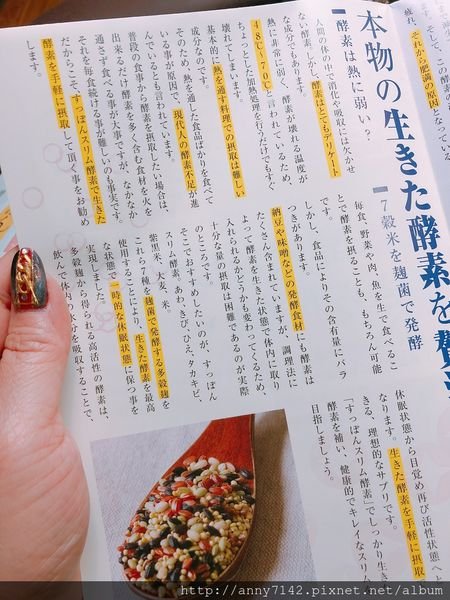 疲れ、それから肥満の原因
本物の生きた酵素を贅
酵素は熱に弱い？
7穀米を麹菌で発酵
人間の体の中で消化や吸収には欠かせ
ない酵素。しかし、酵素はとてもデリケート
な成分でもあります。酵素が壊れる温度が
48℃〜70℃と言われているため、
熱に非常に弱く、
ちょっとした加熱処理を行うだけでもすぐ
壊れてしまいます。
基本的に熱を通す料理での摂取は難しい
成分なのです。
そのため、熱を通した食品ばかりを食べて
いる事が原因で、現代人の酵素不足が進
んでいるとも言われています。
普段の食事から酵素を摂取したい場合は、
出来るだけ酵素を多く含む食材を火を
通さず食べる事が大事ですが、なかなか
それを毎食続ける事が難しいのも事実です。
だからこそ、すっぽんスリム酵素で生きた
酵素を手軽に摂取して頂く事をお勧め
します。
毎食、野菜や肉、魚を生で食べるこ
とで酵素を摂ることも、もちろん可能
しかし、食品によりその含有量にバラ
つきがあります。
納豆や味噌などの発酵食材にも酵素は
たくさん含まれていますが、調理法に
よって酵素を生きた状態で体内に取り
入れられるかどうかも変わってくるため、
十分な量の摂取は困難であるのが実際
のところです。
そこでおすすめしたいのが、すっぽん
スリム酵素。あわ、きび、ひえ、タカキビ、
紫黒米、大麦、米。
これら7種を麹菌で発酵する多穀麹を
使用することにより、生きた酵素を最高
な状態で一時的な休眠状態に保つ事を
実現しました。
多穀麹から得られる高活性の酵素は、
飲んで体内の水分を吸収することで、
休眠状態から目覚め再び活性状態へと
なります。生きた酵素を手軽に摂取
きる、理想的なサプリです。
「すっぽんスリム酵素」でしっかり生き
酵素を補い、健康的でキレイなスリム
目指しましょう。
http://anny7142.pixnet.net/album